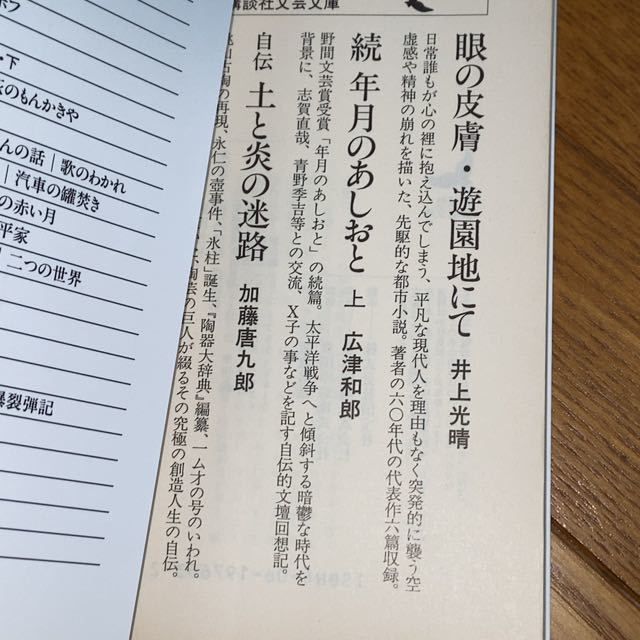 講談社文芸文庫
眼の皮膚・遊園地にて 井上光晴
日常誰もが心の裡に抱え込んでしまう、平凡な現代人を理由もなく突発的に襲う空
虚感や精神の崩れを描いた、先駆的な都市小説。著者の六〇年代の代表作六篇収録。
続 年月のあしおと 上 広津和郎
野間文芸賞受賞「年月のあしおと」の続篇。太平洋戦争へと傾斜する暗鬱な時代を
背景に、志賀直哉、青野季吉等との交流、X子の事などを記す自伝的文壇回想記。
自伝 土と炎の迷路 加藤唐九郎
の再現、永仁の壺事件、「氷柱」誕生、『陶器大辞典』編纂、一ム才の号のいわれ。
陶芸の巨人が綴るその究極の創造人生の自伝。
・下
のもんかきや
んの話│歌のわかれ
│汽車の罐焚き
の赤い月
平家
│二つの世界
爆裂弾記